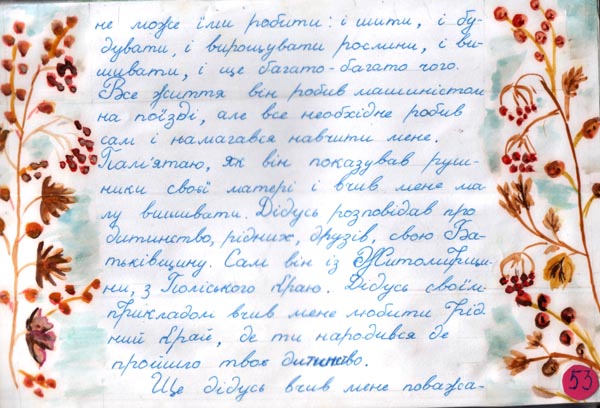 не може їми робити: і шити, і бу-
дувати, і вирощувати рослини, і ви-
шивати, і ще багато-багато чого.
Все життя він робив машиністом
на поїзді, але все необхідне робив
сам і намагався навчити мене.
Пам'ятаю, як він показував руш-
ники своєї матері і вчив мене ма-
лу вишивати. Дідусь розповідав про
дитинство, рідних, друзів, свою Ба-
тьківщину. Сам він із Житомирщи-
ни, з Поліського краю. Дідусь своїм
прикладом вчив мене любити рід
ний край, де ти народився де
пройшло твоє дитинство.
Ще дідусь вчив мене поважа-
53